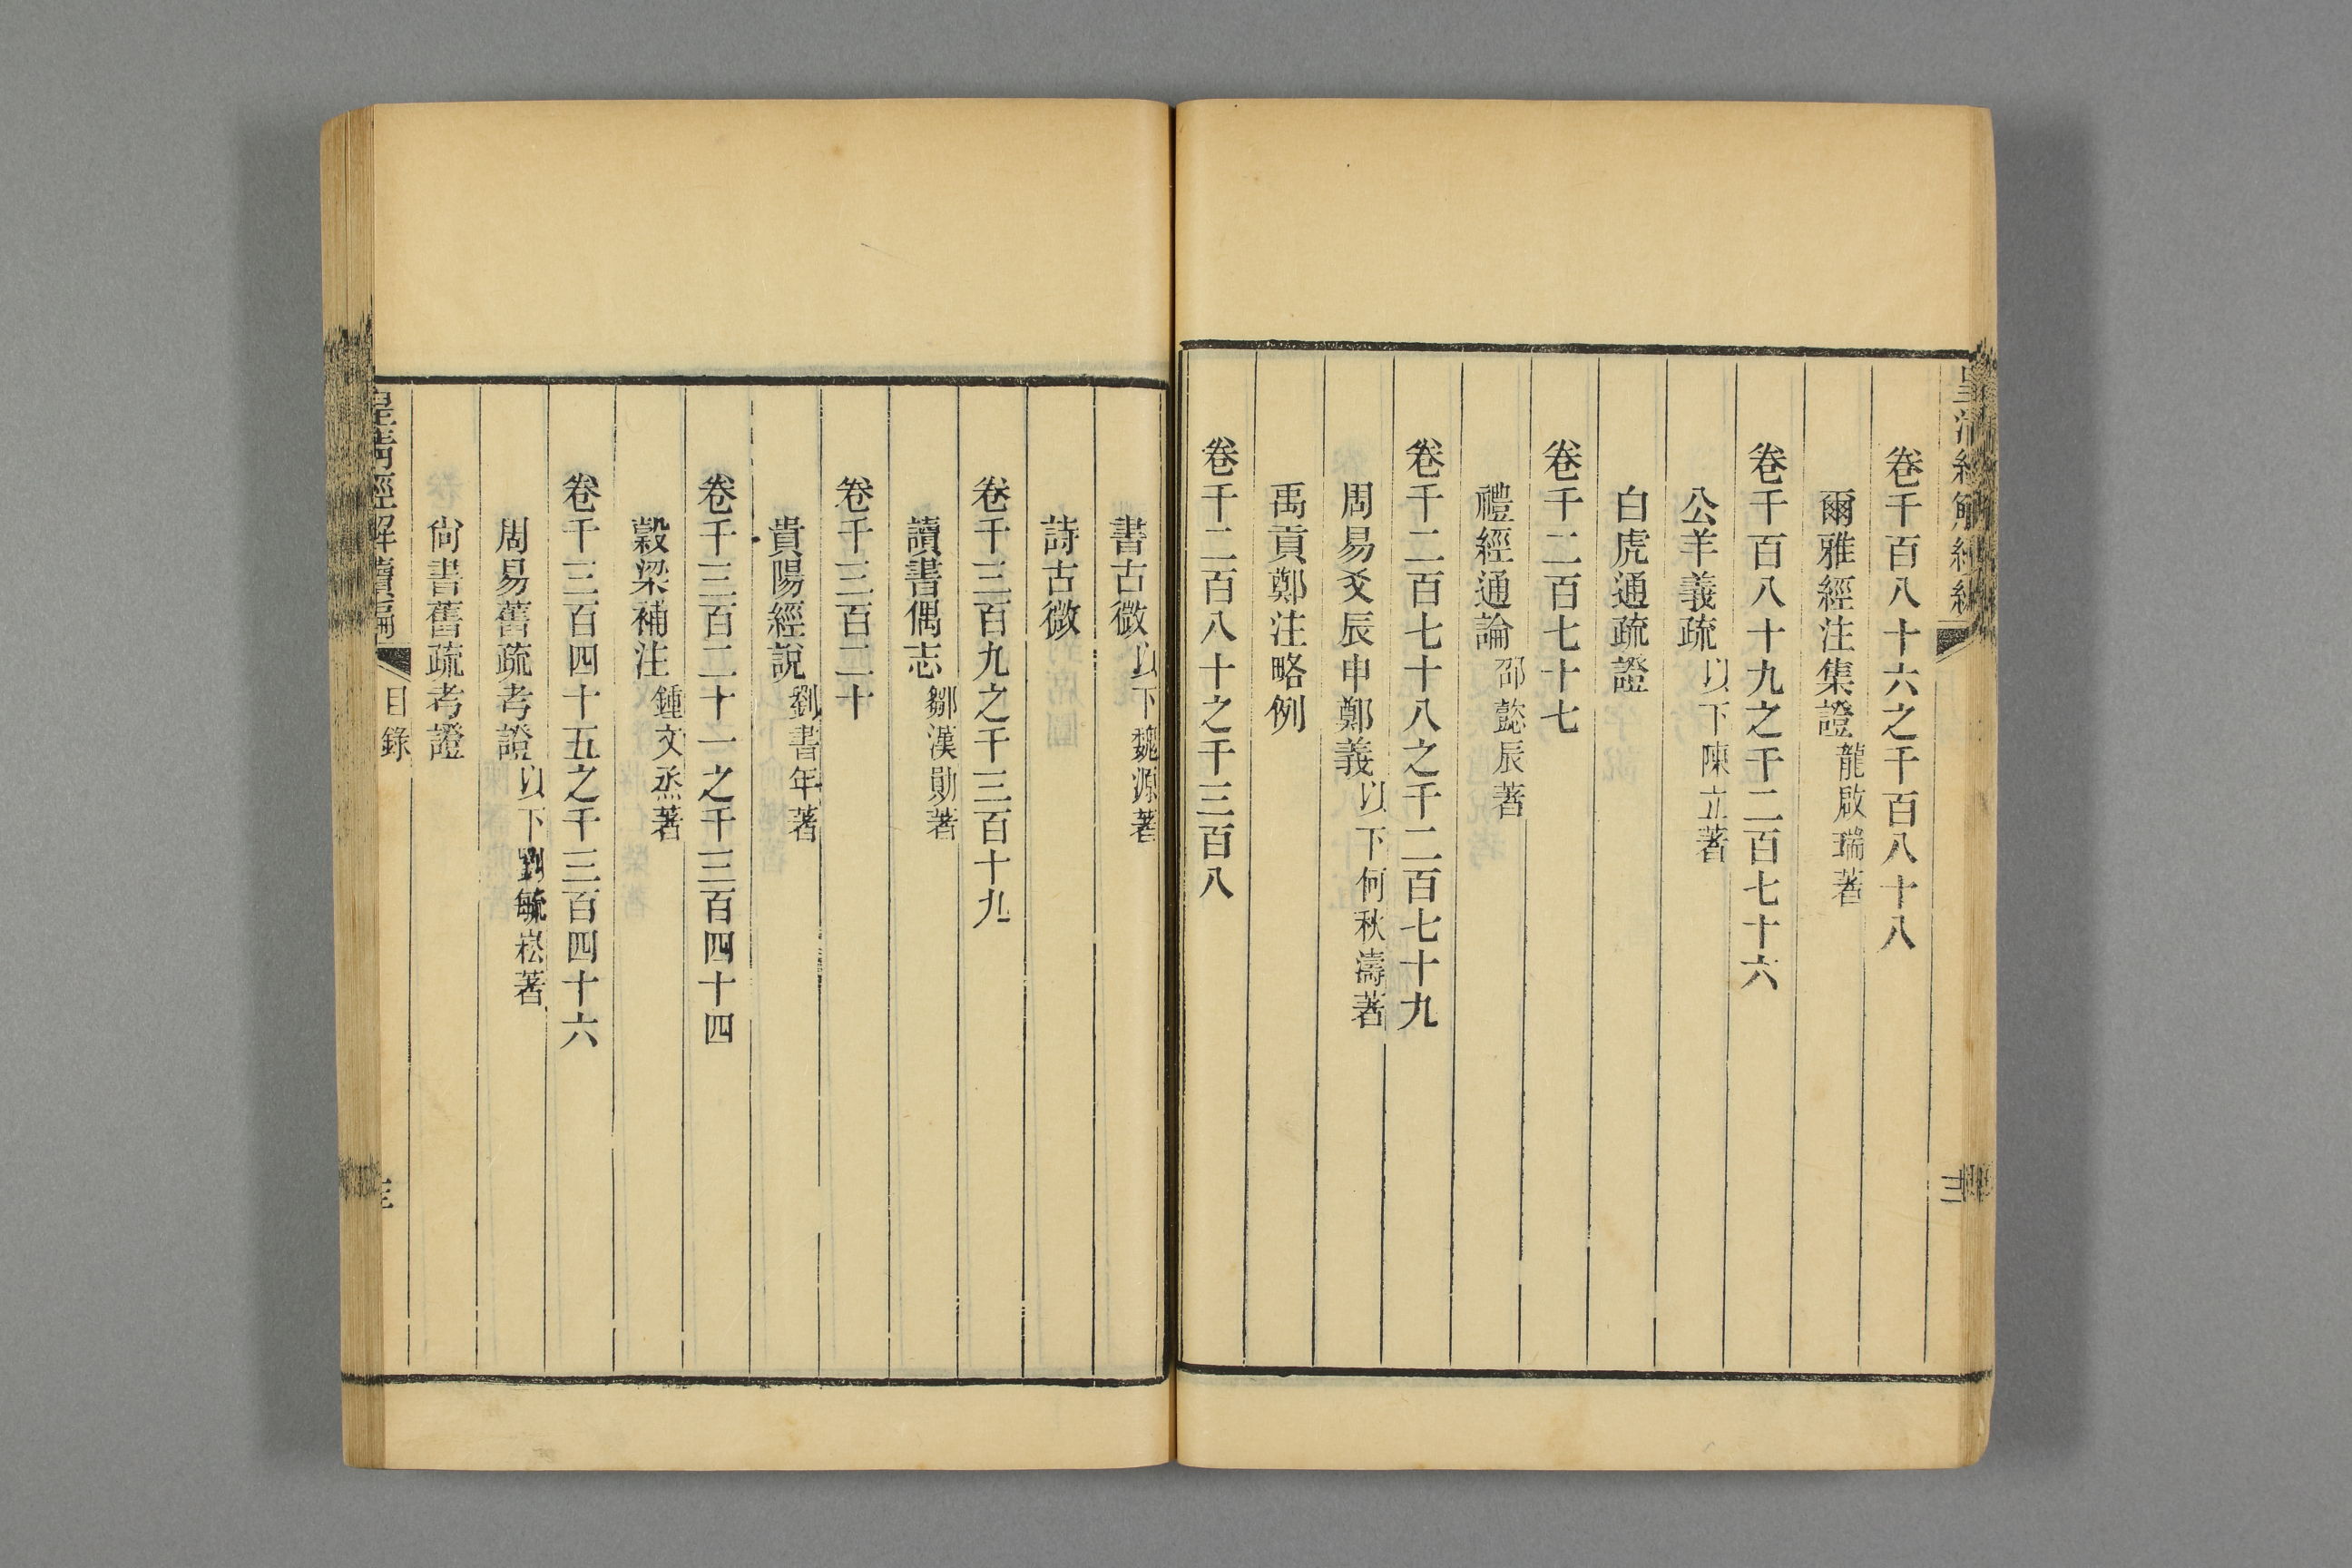 卷千百八十六之千百八十八
爾雅經注集證 龍啟瑞著
卷千百八十九之千二百七十六
公羊義疏 以下陳立著
白虎通疏證
卷千二百七十七
禮經通論 邵懿辰著
卷千二百七十八之千二百七十九
周易爻辰申鄭義 以下何秋濤著
禹貢鄭注略例
卷千二百八十之千三百八
書古微 以下魏源著
詩古微
卷千三百九之千三百十九
讀書偶志 鄒漢勛著
卷千三百二十
貴陽經說 劉書年著
卷千三百二十一之千三百四十四
穀梁補注 鍾文烝著
卷千三百四十五之千三百四十六
周易舊疏考證 以下劉毓崧著
尚書舊疏考證
皇清經解續編 目錄